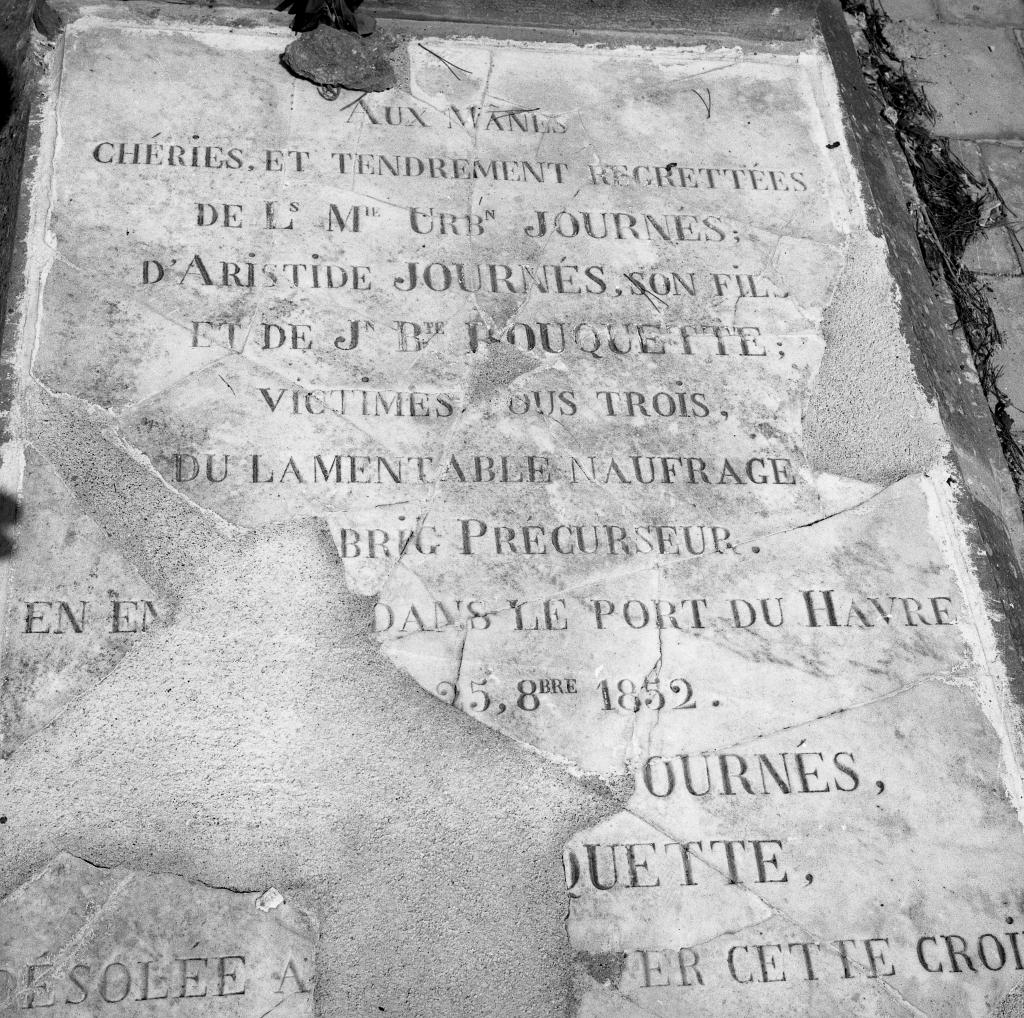 AUX MANES
CHÉRIES, ET TENDREMENT REGRETTÉES
DE Lˢ Mⁱᵉ URBᴺ JOURNÉS;
D'ARISTIDE JOURNÉS, SON FILS
ET DE Jᴺ Bᵀᴱ ROUQUETTE;
VICTIMES, OUS TROIS,
DU LAMENTABLE NAUFRAGE
BRIG PRÉCURSEUR.
EN EN DANS LE PORT DU HAVRE
25, 8ᴮᴿᴱ 1852.
OURNÉS,
QUETTE,
DESOLÉE A VER CETTE CROI